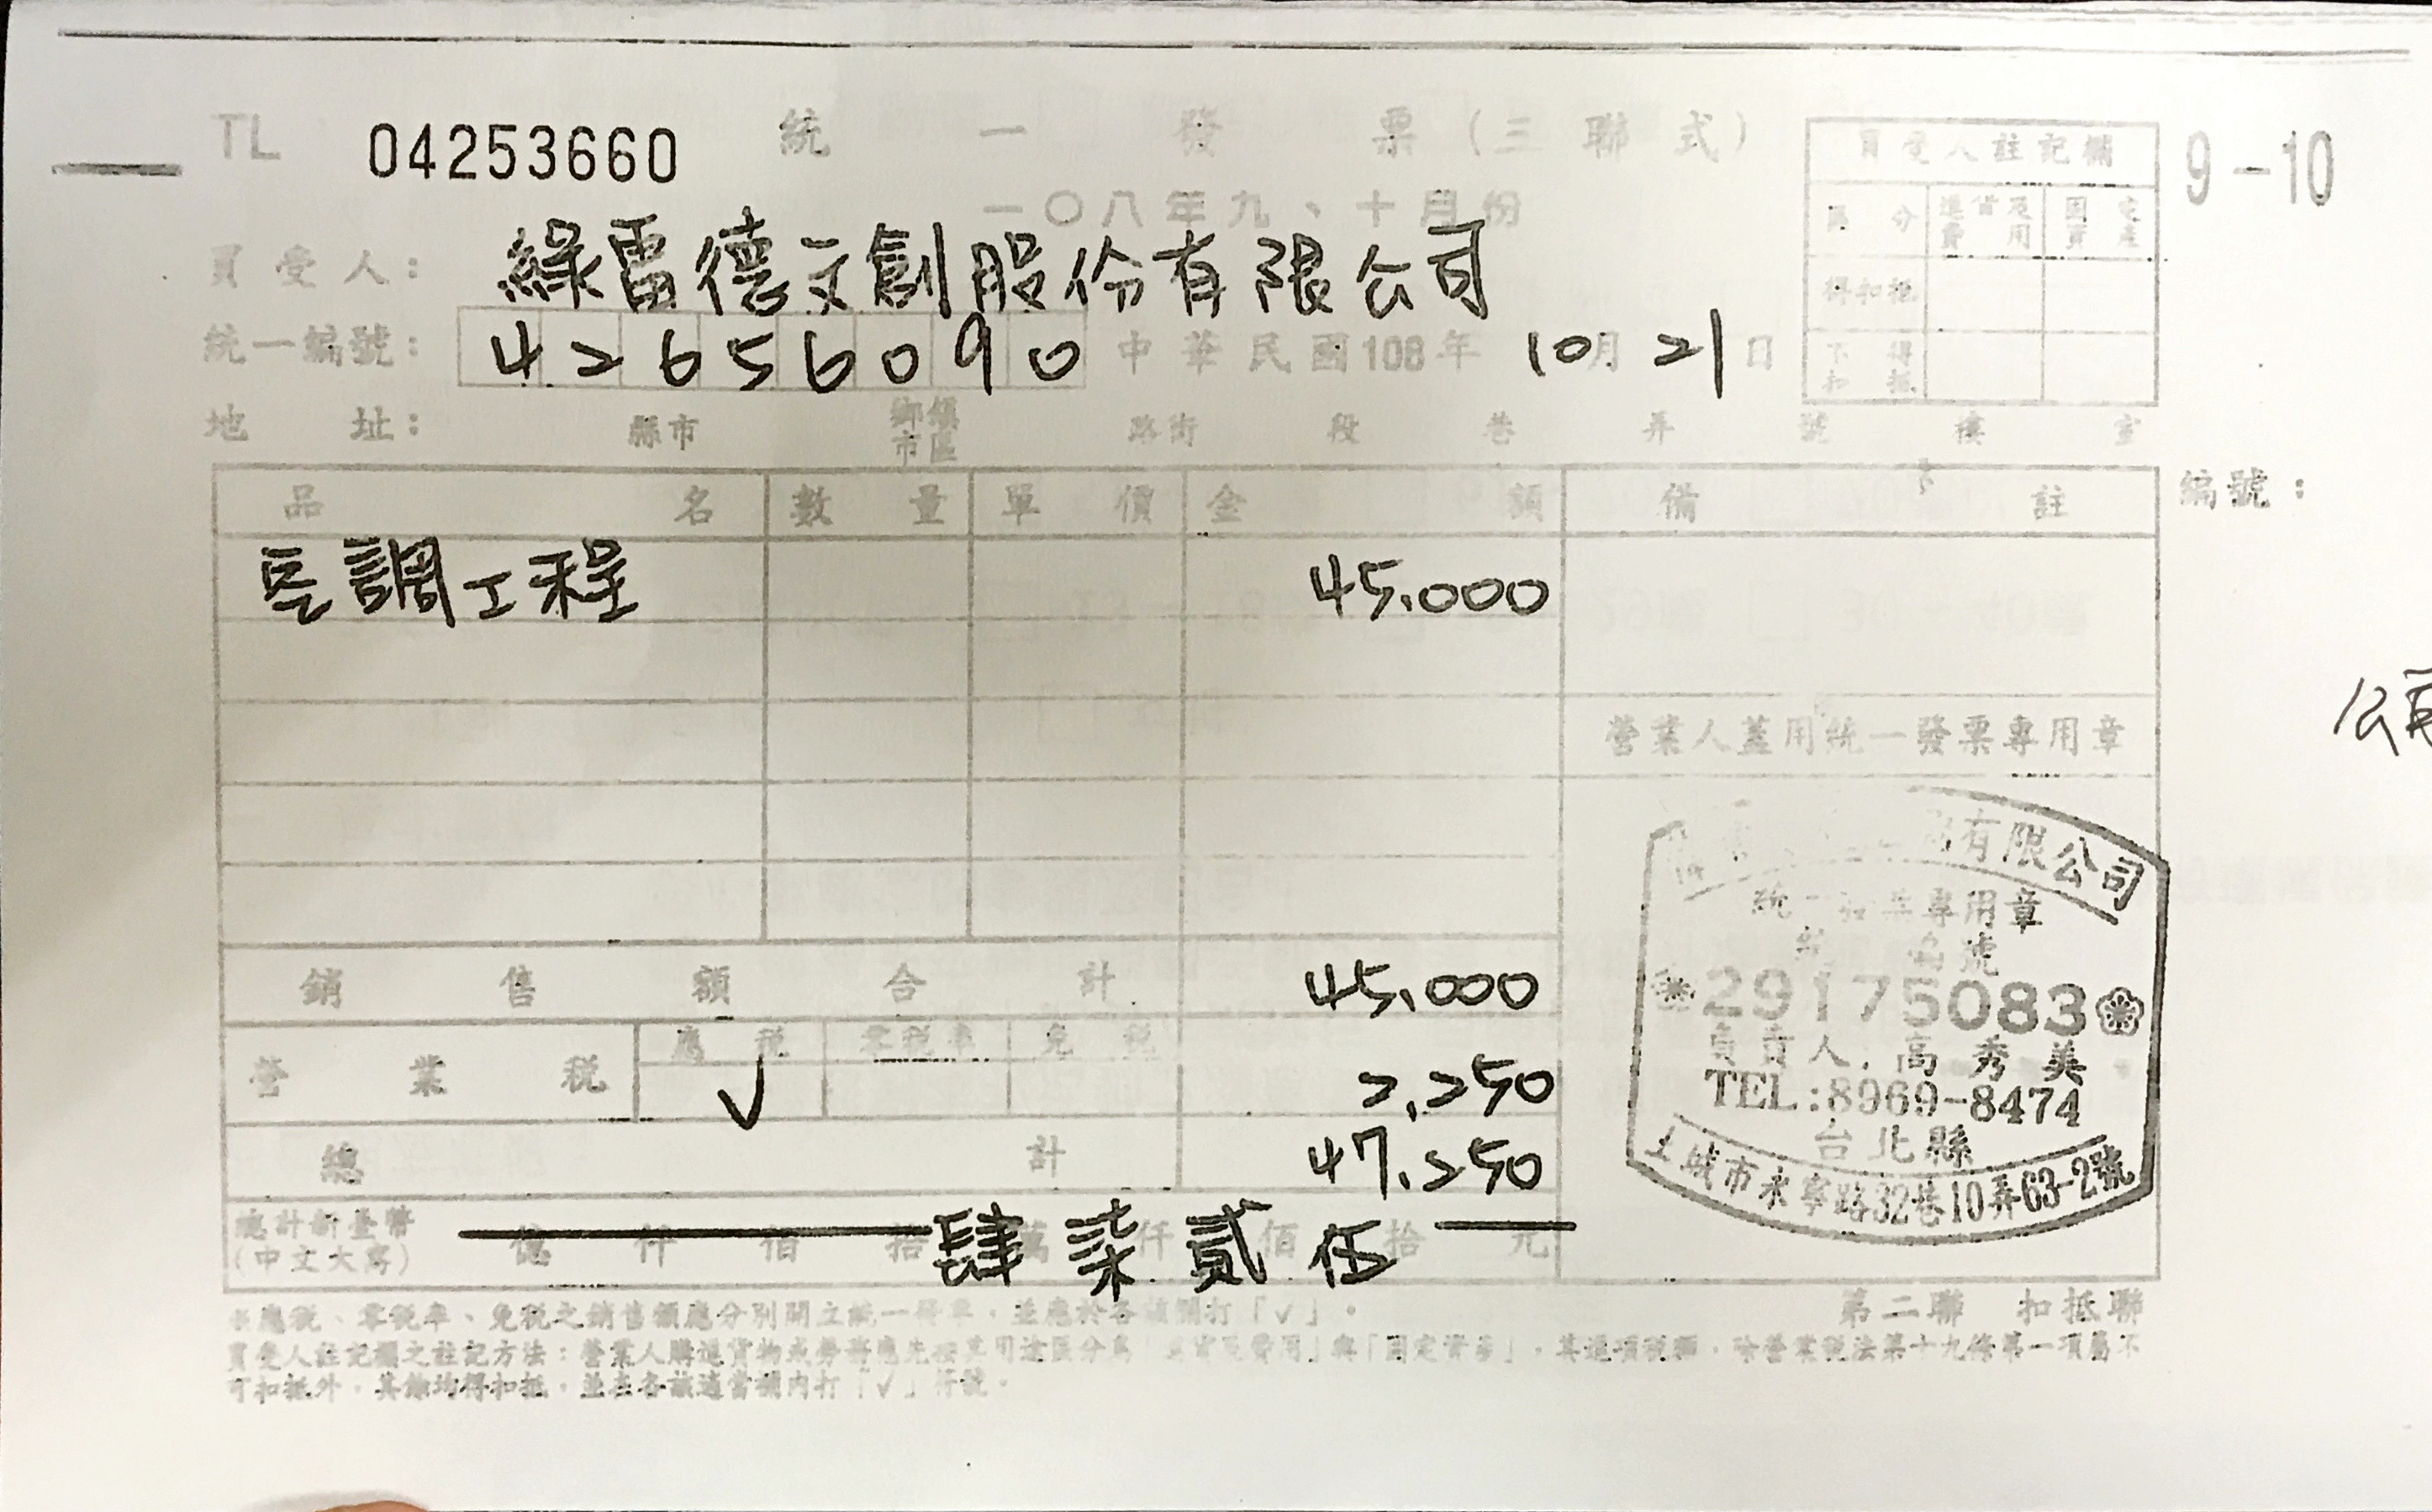 TL 04253660 統一發票(三聯式)
9-10
一〇八年九、十月份
買受人註記欄
區分 進貨及費用 固定資產
得扣抵
不得扣抵
買受人: 綠雷德文創股份有限公司
統一編號: 42656090 中華民國108年 10月 21日
地址: 縣市 鄉鎮市區 路街 段 巷 弄 號 樓 室
編號:
品名 數量 單價 金額 備註
空調工程 45,000
營業人蓋用統一發票專用章
銷售額合計 45,000
營業稅 應稅 ✓ 零稅率 免稅 2,250
總計 47,250
總計新臺幣(中文大寫) 億 仟 佰 拾 肆 萬 柒 仟 貳 佰 伍 拾 元
有限公司
統一發票專用章
統一編號
29175083
負責人:高秀美
TEL:8969-8474
台北縣
土城市永寧路32巷10弄63-2號
第二聯 扣抵聯
※應稅、零稅率、免稅之銷售額應分別開立統一發票,並應於各該欄打「✓」。
買受人註記欄之註記方法:營業人購進貨物或勞務應先按其用途區分為「進貨及費用」與「固定資產」,其進項稅額,除營業稅法第十九條第一項屬不
可扣抵外,其餘均得扣抵,並在各該適當欄內打「✓」符號。